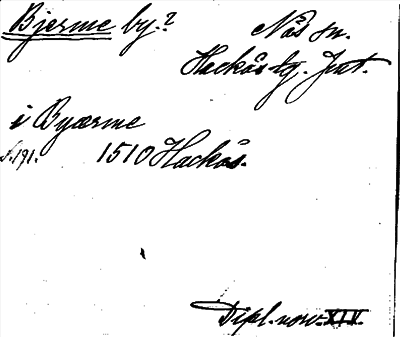 Bjerme by.? Näs sn.
Hackås tg. Jmt.
i Byærme
s. 191. 1510 Hackås.
Dipl. norv. XIV.